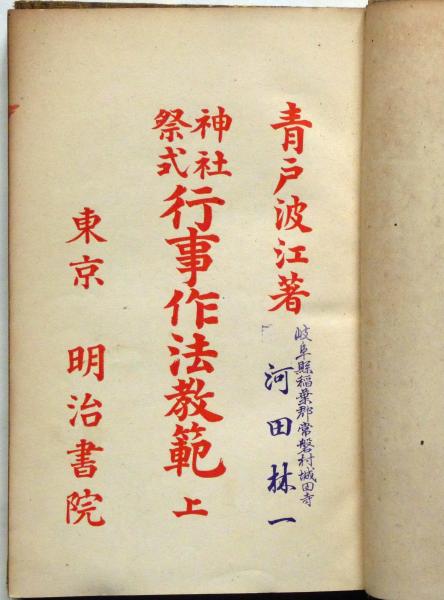 青戸波江著
岐阜縣稲葉郡常磐村城田寺
河田林一
神社
祭式
行事作法教範 上
東京 明治書院